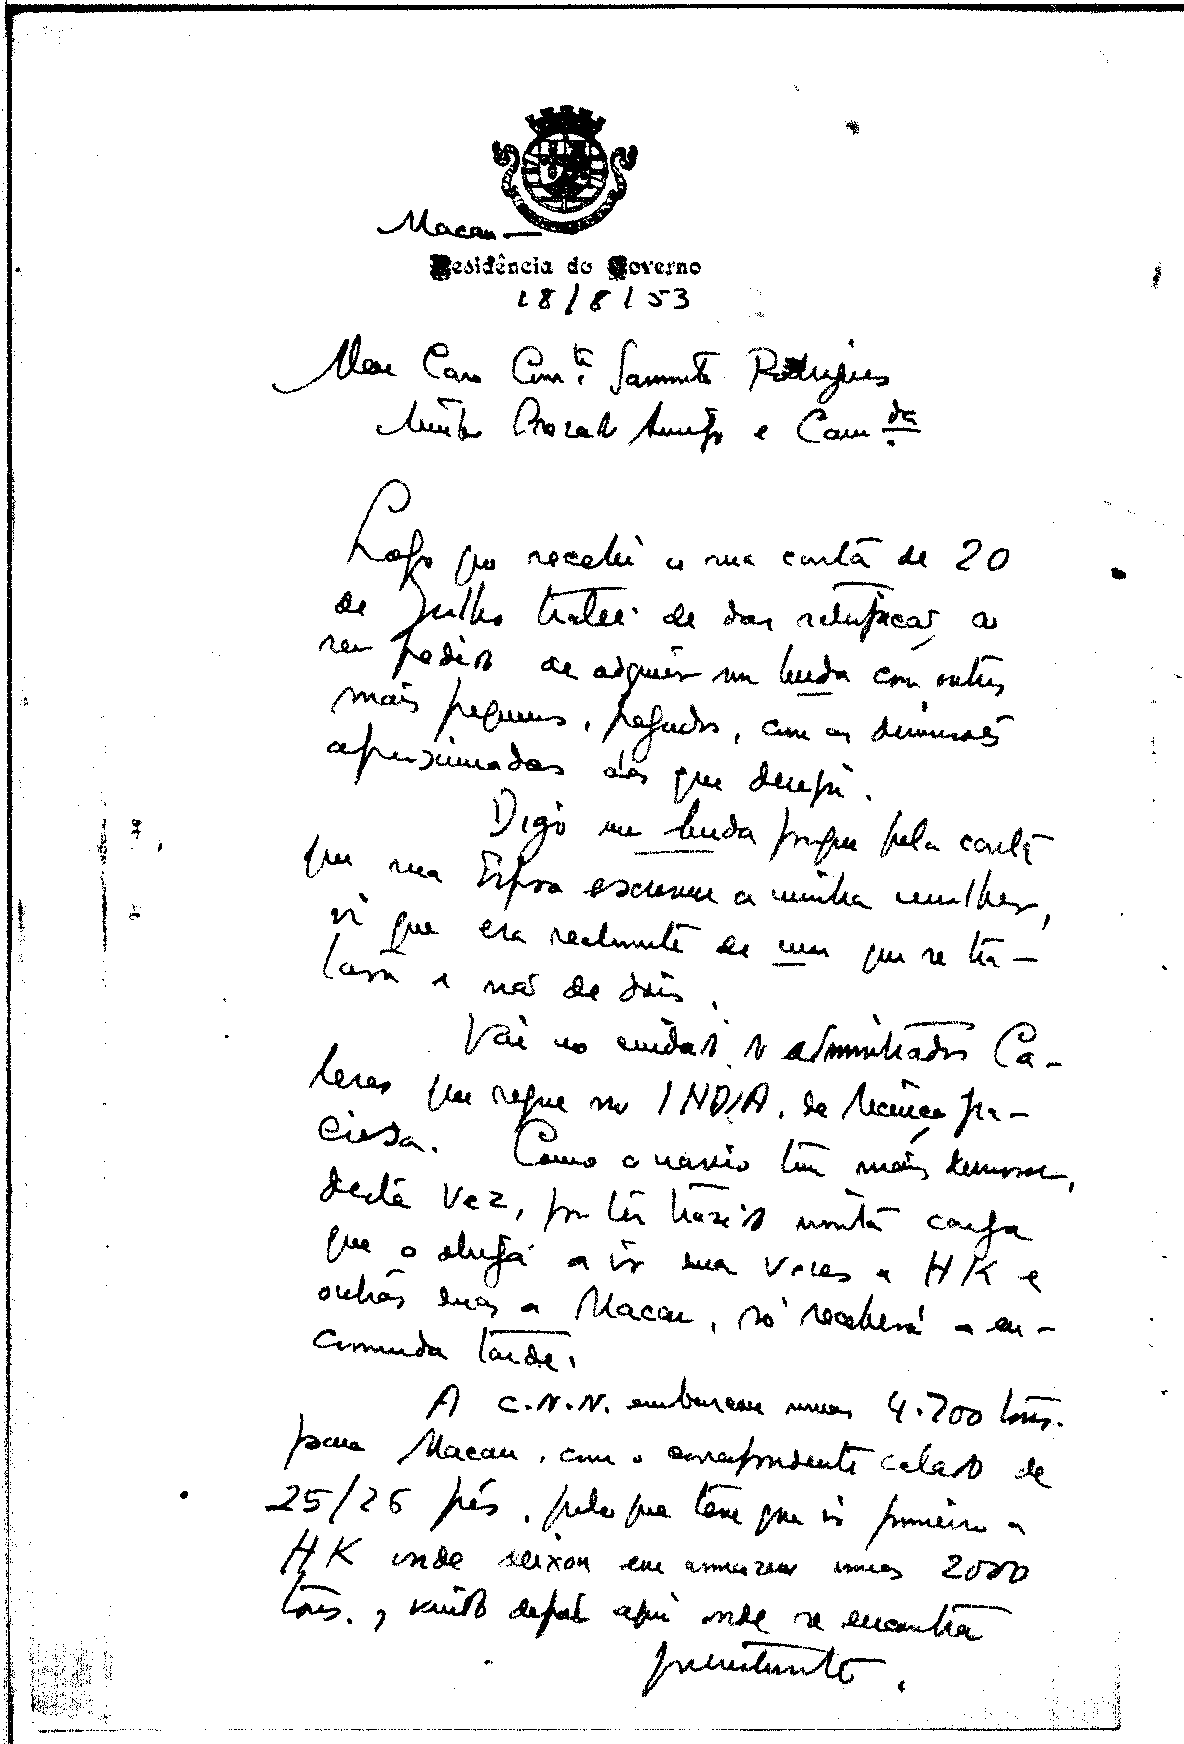 Macau —
Residência do Governo
18/8/53
Meu Caro Com.te Sarmento Rodrigues
Muito Prezado Amigo e Cam.da
Logo que recebi a sua carta de 20
de Julho tratei de dar satisfação ao
seu pedido de adquirir um buda com outros
mais pequenos, pegados, com as dimensões
aproximadas das que deseja.
Digo um buda porque pela carta
que sua Esposa escreveu a minha mulher,
vi que era realmente de um que se tra-
tava e não de dois.
Vai ao cuidado do administrador Ca-
que segue no INDIA, da
Como o navio tem mais demora,
desta vez, por ter trazido muita carga
que o obriga a ir duas vezes a HK e
outras duas a Macau, só receberá a en-
comenda tarde.
A C.N.N. embarcou umas 4.700 tons.
para Macau, com o correspondente calado de
25/26 pés, pelo que teve que ir primeiro a
HK onde deixou em armazem umas 2000
tons., vindo depois aqui onde se encontra
presentemente.